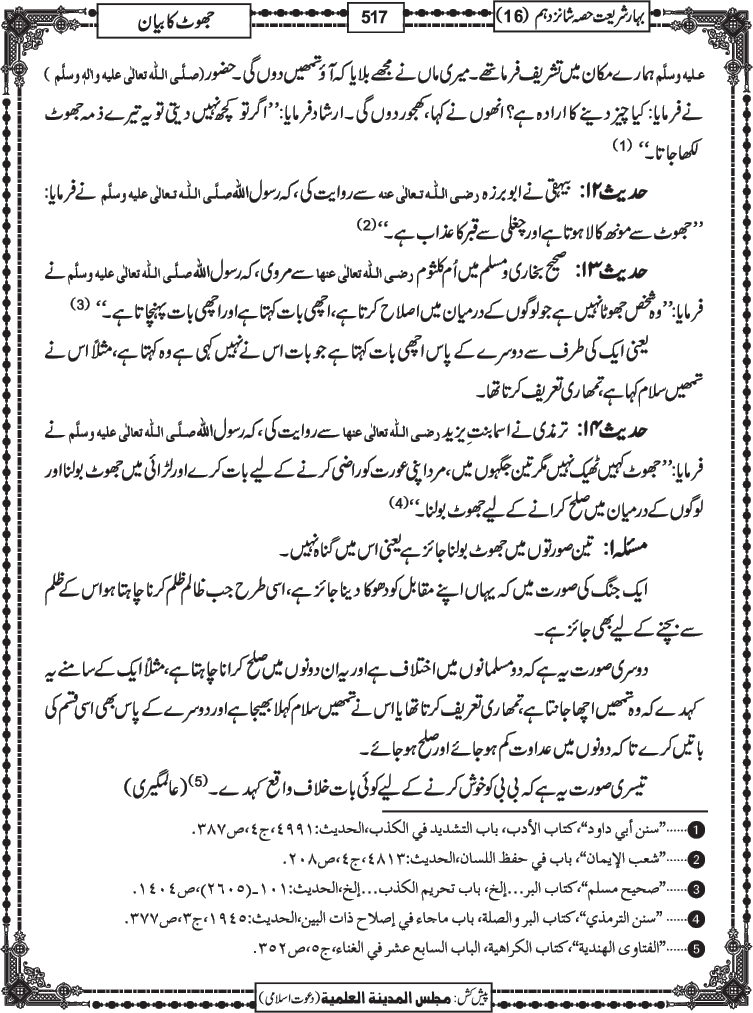 بہارشریعت حصہ شانزدہم (16)
517
جھوٹ کا بیان
علیہ وسلَّم ہمارے مکان میں تشریف فرما تھے۔ میری ماں نے مجھے بلایا کہ آؤ تمھیں دوں گی۔ حضور (صلَّی اللہ تعالٰی علیہ واٰلہٖ وسلَّم)
نے فرمایا: کیا چیز دینے کا ارادہ ہے؟ انھوں نے کہا، کھجور دوں گی۔ ارشاد فرمایا: ’’اگر تو کچھ نہیں دیتی تو یہ تیرے ذمہ جھوٹ
لکھا جاتا۔‘‘ (1)
حدیث ۱۲: بیہقی نے ابوبرزہ رضی اللہ تعالٰی عنہ سے روایت کی، کہ رسول اللہ صلَّی اللہ تعالٰی علیہ وسلَّم نے فرمایا:
’’جھوٹ سے مونھ کالا ہوتا ہے اور چغلی سے قبر کا عذاب ہے۔‘‘(2)
حدیث ۱۳: صحیح بخاری و مسلم میں اُم کلثوم رضی اللہ تعالٰی عنہا سے مروی، کہ رسول اللہ صلَّی اللہ تعالٰی علیہ وسلَّم نے
فرمایا: ’’وہ شخص جھوٹا نہیں ہے جو لوگوں کے درمیان میں اصلاح کرتا ہے، اچھی بات کہتا ہے اور اچھی بات پہنچاتا ہے۔‘‘ (3)
یعنی ایک کی طرف سے دوسرے کے پاس اچھی بات کہتا ہے جو بات اس نے نہیں کہی ہے وہ کہتا ہے، مثلاً اس نے
تمھیں سلام کہا ہے، تمھاری تعریف کرتا تھا۔
حدیث ۱۴: ترمذی نے اسما بنتِ یزید رضی اللہ تعالٰی عنہا سے روایت کی، کہ رسول اللہ صلَّی اللہ تعالٰی علیہ وسلَّم نے
فرمایا: ’’جھوٹ کہیں ٹھیک نہیں مگر تین جگہوں میں، مرد اپنی عورت کو راضی کرنے کے لیے بات کرے اور لڑائی میں جھوٹ بولنا اور
لوگوں کے درمیان میں صلح کرانے کے لیے جھوٹ بولنا۔‘‘(4)
مسئلہ ۱: تین صورتوں میں جھوٹ بولنا جائز ہے یعنی اس میں گناہ نہیں۔
ایک جنگ کی صورت میں کہ یہاں اپنے مقابل کو دھوکا دینا جائز ہے، اسی طرح جب ظالم ظلم کرنا چاہتا ہو اس کے ظلم
سے بچنے کے لیے بھی جائز ہے۔
دوسری صورت یہ ہے کہ دو مسلمانوں میں اختلاف ہے اور یہ ان دونوں میں صلح کرانا چاہتا ہے، مثلاً ایک کے سامنے یہ
کہدے کہ وہ تمھیں اچھا جانتا ہے، تمھاری تعریف کرتا تھا یا اس نے تمھیں سلام کہلا بھیجا ہے اور دوسرے کے پاس بھی اسی قسم کی
باتیں کرے تاکہ دونوں میں عداوت کم ہوجائے اور صلح ہوجائے۔
تیسری صورت یہ ہے کہ بی بی کو خوش کرنے کے لیے کوئی بات خلاف واقع کہدے۔(5) (عالمگیری)
1......”سنن أبي داود“، کتاب الأدب، باب التشدید في الکذب، الحدیث:٤٩٩١، ج٤، ص٣٨٧.
2......”شعب الإیمان“، باب في حفظ اللسان، الحدیث:٤٨١٣، ج٤، ص٢٠٨.
3......”صحیح مسلم“، کتاب البر...إلخ، باب تحریم الکذب...إلخ، الحدیث:١٠١-(٢٦٠٥)، ص١٤٠٤.
4......”سنن الترمذي“، کتاب البر والصلة، باب ماجاء في إصلاح ذات البین، الحدیث:١٩٤٥، ج٣، ص٣٧٧.
5......”الفتاوی الھندیة“، کتاب الکراھیة، الباب السابع عشر في الغناء، ج٥، ص٣٥٢.
پیش کش: مجلس المدینة العلمیة (دعوتِ اسلامی)